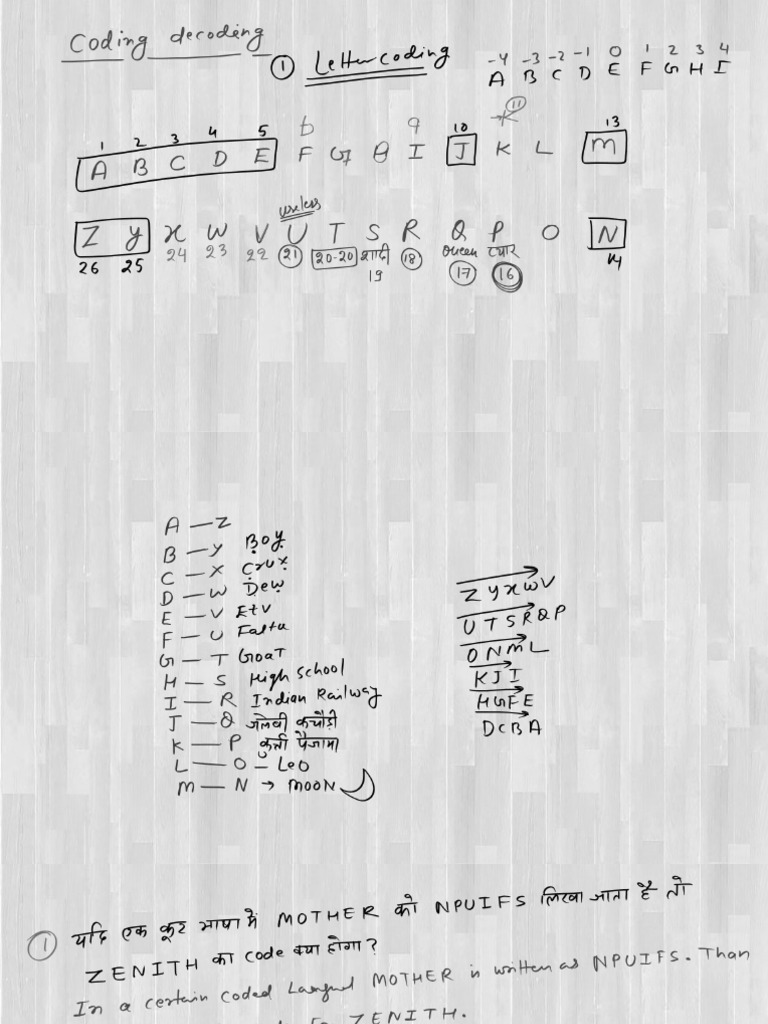 Coding decoding
① Letter coding
-4 -3 -2 -1 0 1 2 3 4
A B C D E F G H I
1 2 3 4 5 6 9 10 11 13
A B C D E F G H I J K L M
useless
Z Y X W V U T S R Q P O N
26 25 24 23 22 21 20-20 शादी 18 Queen प्यार 14
19 17 16
A — Z
B — Y Boy
C — X Crux
D — W Dew
E — V Etv
F — U Faltu
G — T Goat
H — S High School
I — R Indian Railway
J — Q जलेबी कचौड़ी
K — P कुर्ता पैजामा
L — O — Leo
M — N → MOON
Z Y X W V
U T S R Q P
O N M L
K J I
H G F E
D C B A
① यदि एक कूट भाषा में MOTHER को NPUIFS लिखा जाता है तो
ZENITH का code क्या होगा?
In a certain coded Languel MOTHER is written as NPUIFS. Than
ZENITH.